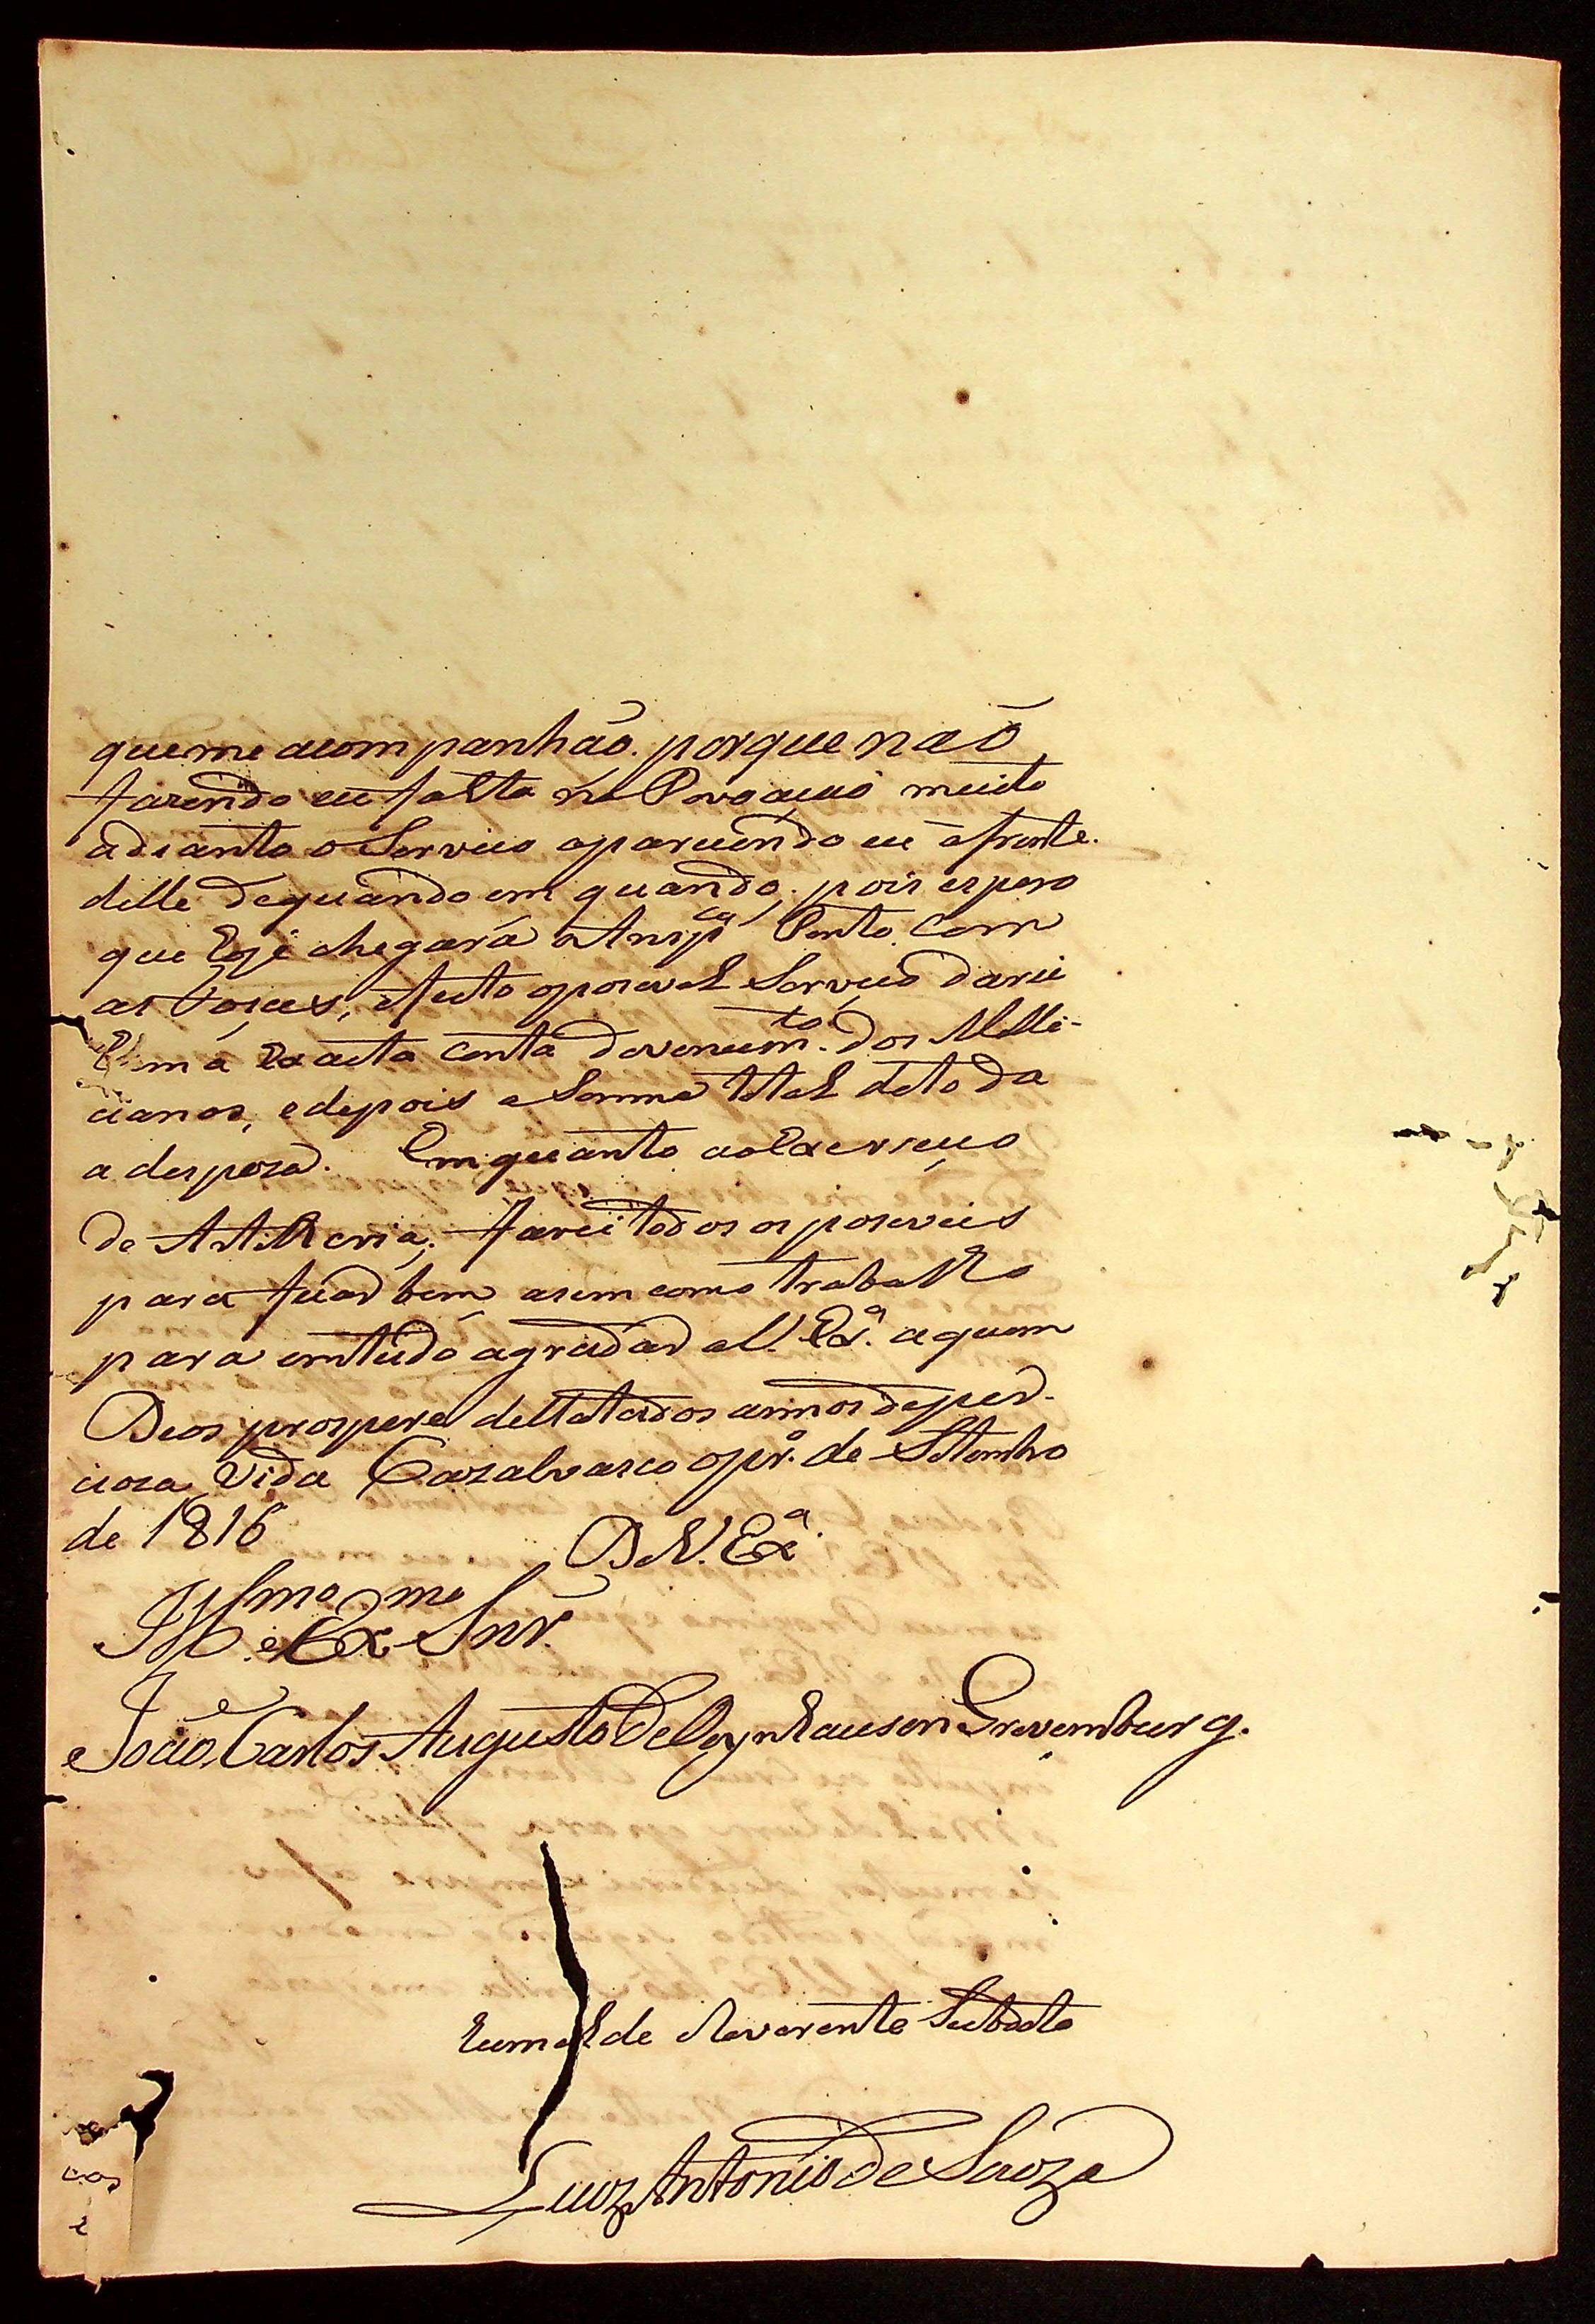 que me acompanhão. porque não
fazendo eu falta na Povoação muito
adianto o Serviço aparecendo eu á frente
delle de quando em quando; pois espero
que hoje chegará o Ansp.ᶜᵃ Pinto Com
as Vozes, e feito oposivel Serviço darei
huma exacta Conta do vencim.ᵗᵒ dos Mili-
cianos, e depois a Somma total de toda
a despeza. Em quanto ao Exerciço
de Artilheria, farei todos os posiveis
para ficar bem, asim como trabalho
para em tudo agradar a V. Ex.ᵃ a quem
Deos prospere delatados annos de pre-
cioza Vida Cazalvasco o pr.º de Setembro
de 1816
De V. Ex.ᵃ
Ill.ᵐᵒ e Ex.ᵐᵒ Snr.
João Carlos Augusto de Oeynhausen Grevemburg.
humilde Reverente Subdito
Luiz Antonio de Souza